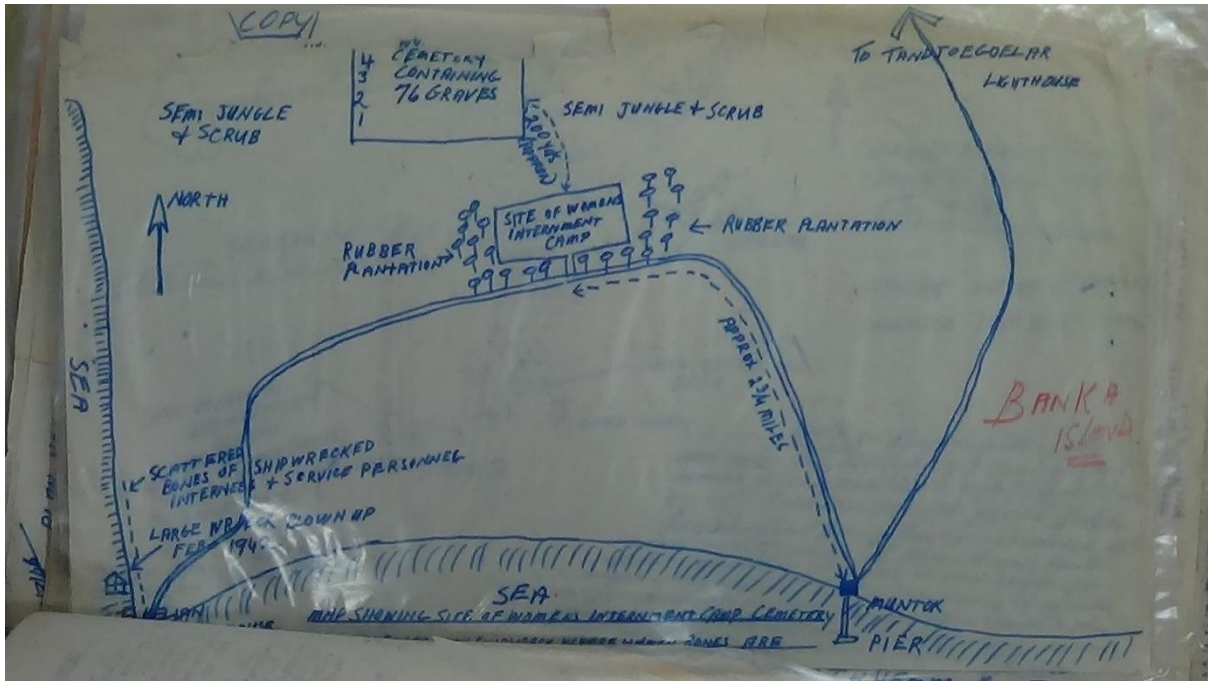 COPY
4 CEMETORY
3 CONTAINING
2 76 GRAVES
1
SEMI JUNGLE
& SCRUB
SEMI JUNGLE & SCRUB
200 YDS
APPROX
TO
LIGHTHOUSE
NORTH
SITE OF WOMENS
INTERNMENT
CAMP
RUBBER
PLANTATION
RUBBER PLANTATION
SEA
APPROX 2 3/4 MILES
BANKA
ISLAND
SCATTERED
BONES OF SHIPWRECKED
INTERNEES & SERVICE PERSONNEL
LARGE WRECK BLOWN UP
FEB 194
SEA
MAP SHOWING SITE OF WOMENS INTERNMENT CAMP CEMETERY
BONES ARE
MUNTOK
PIER